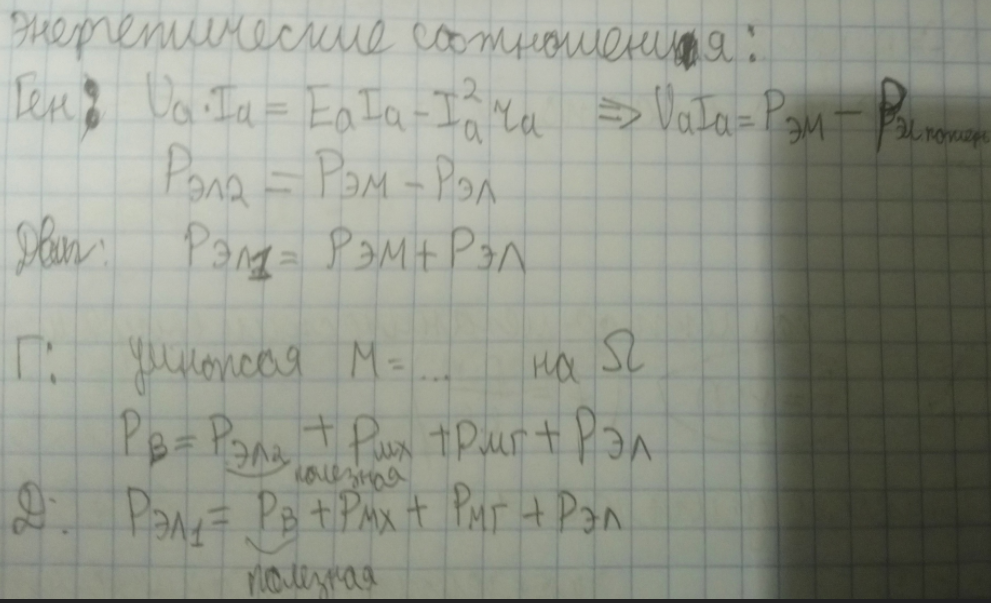 Энергетические соотношения:
Ген: Ua·Ia = EaIa - Ia²ra ⇒ UaIa = Pэм - Pэл потерь
Pэл2 = Pэм - Pэл
Двиг: Pэл1 = Pэм + Pэл
Г: умножая M = ... на Ω
Pв = Pэл2 + Pмх + Pмг + Pэл
полезная
Д: Pэл1 = Pв + Pмх + Pмг + Pэл
полезная